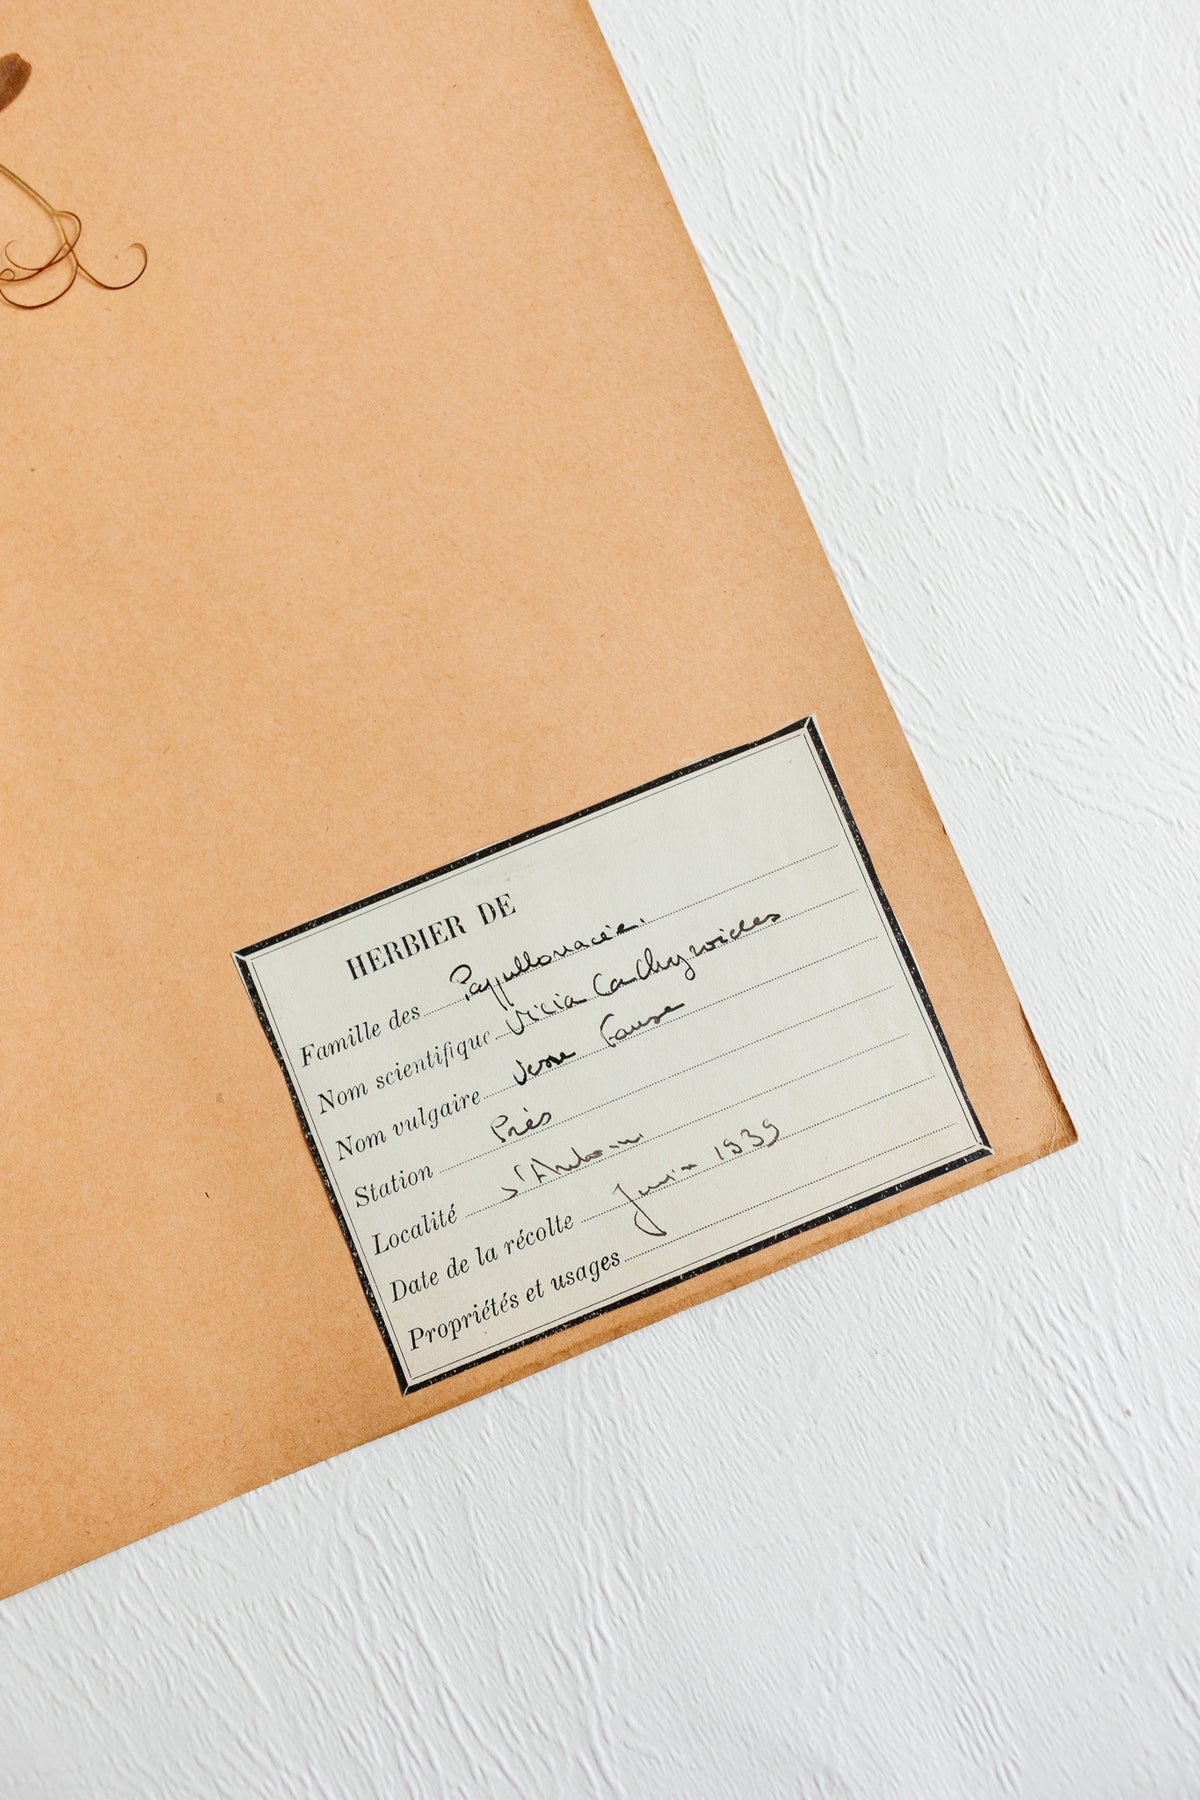 HERBIER DE
Famille des Papillonacée.
Nom scientifique Vicia Cathyroides
Nom vulgaire Vesse Fausse
Station Près
Localité St Antonin
Date de la récolte Juin 1939
Propriétés et usages